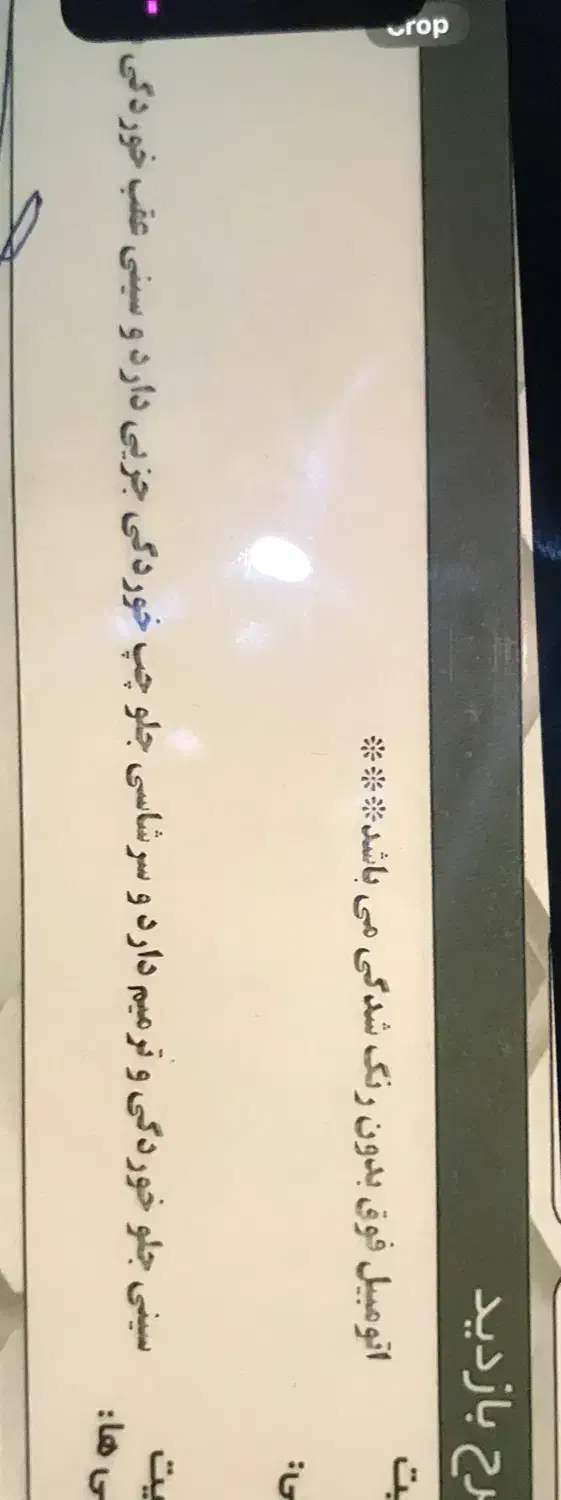 Crop
بازدید
اتومبیل فوق بدون رنگ شدگی می باشد***
سینی جلو خوردگی و ترمیم دارد و سرشاسی جلو چپ خوردگی جزیی دارد و سینی عقب خوردگی
ها: